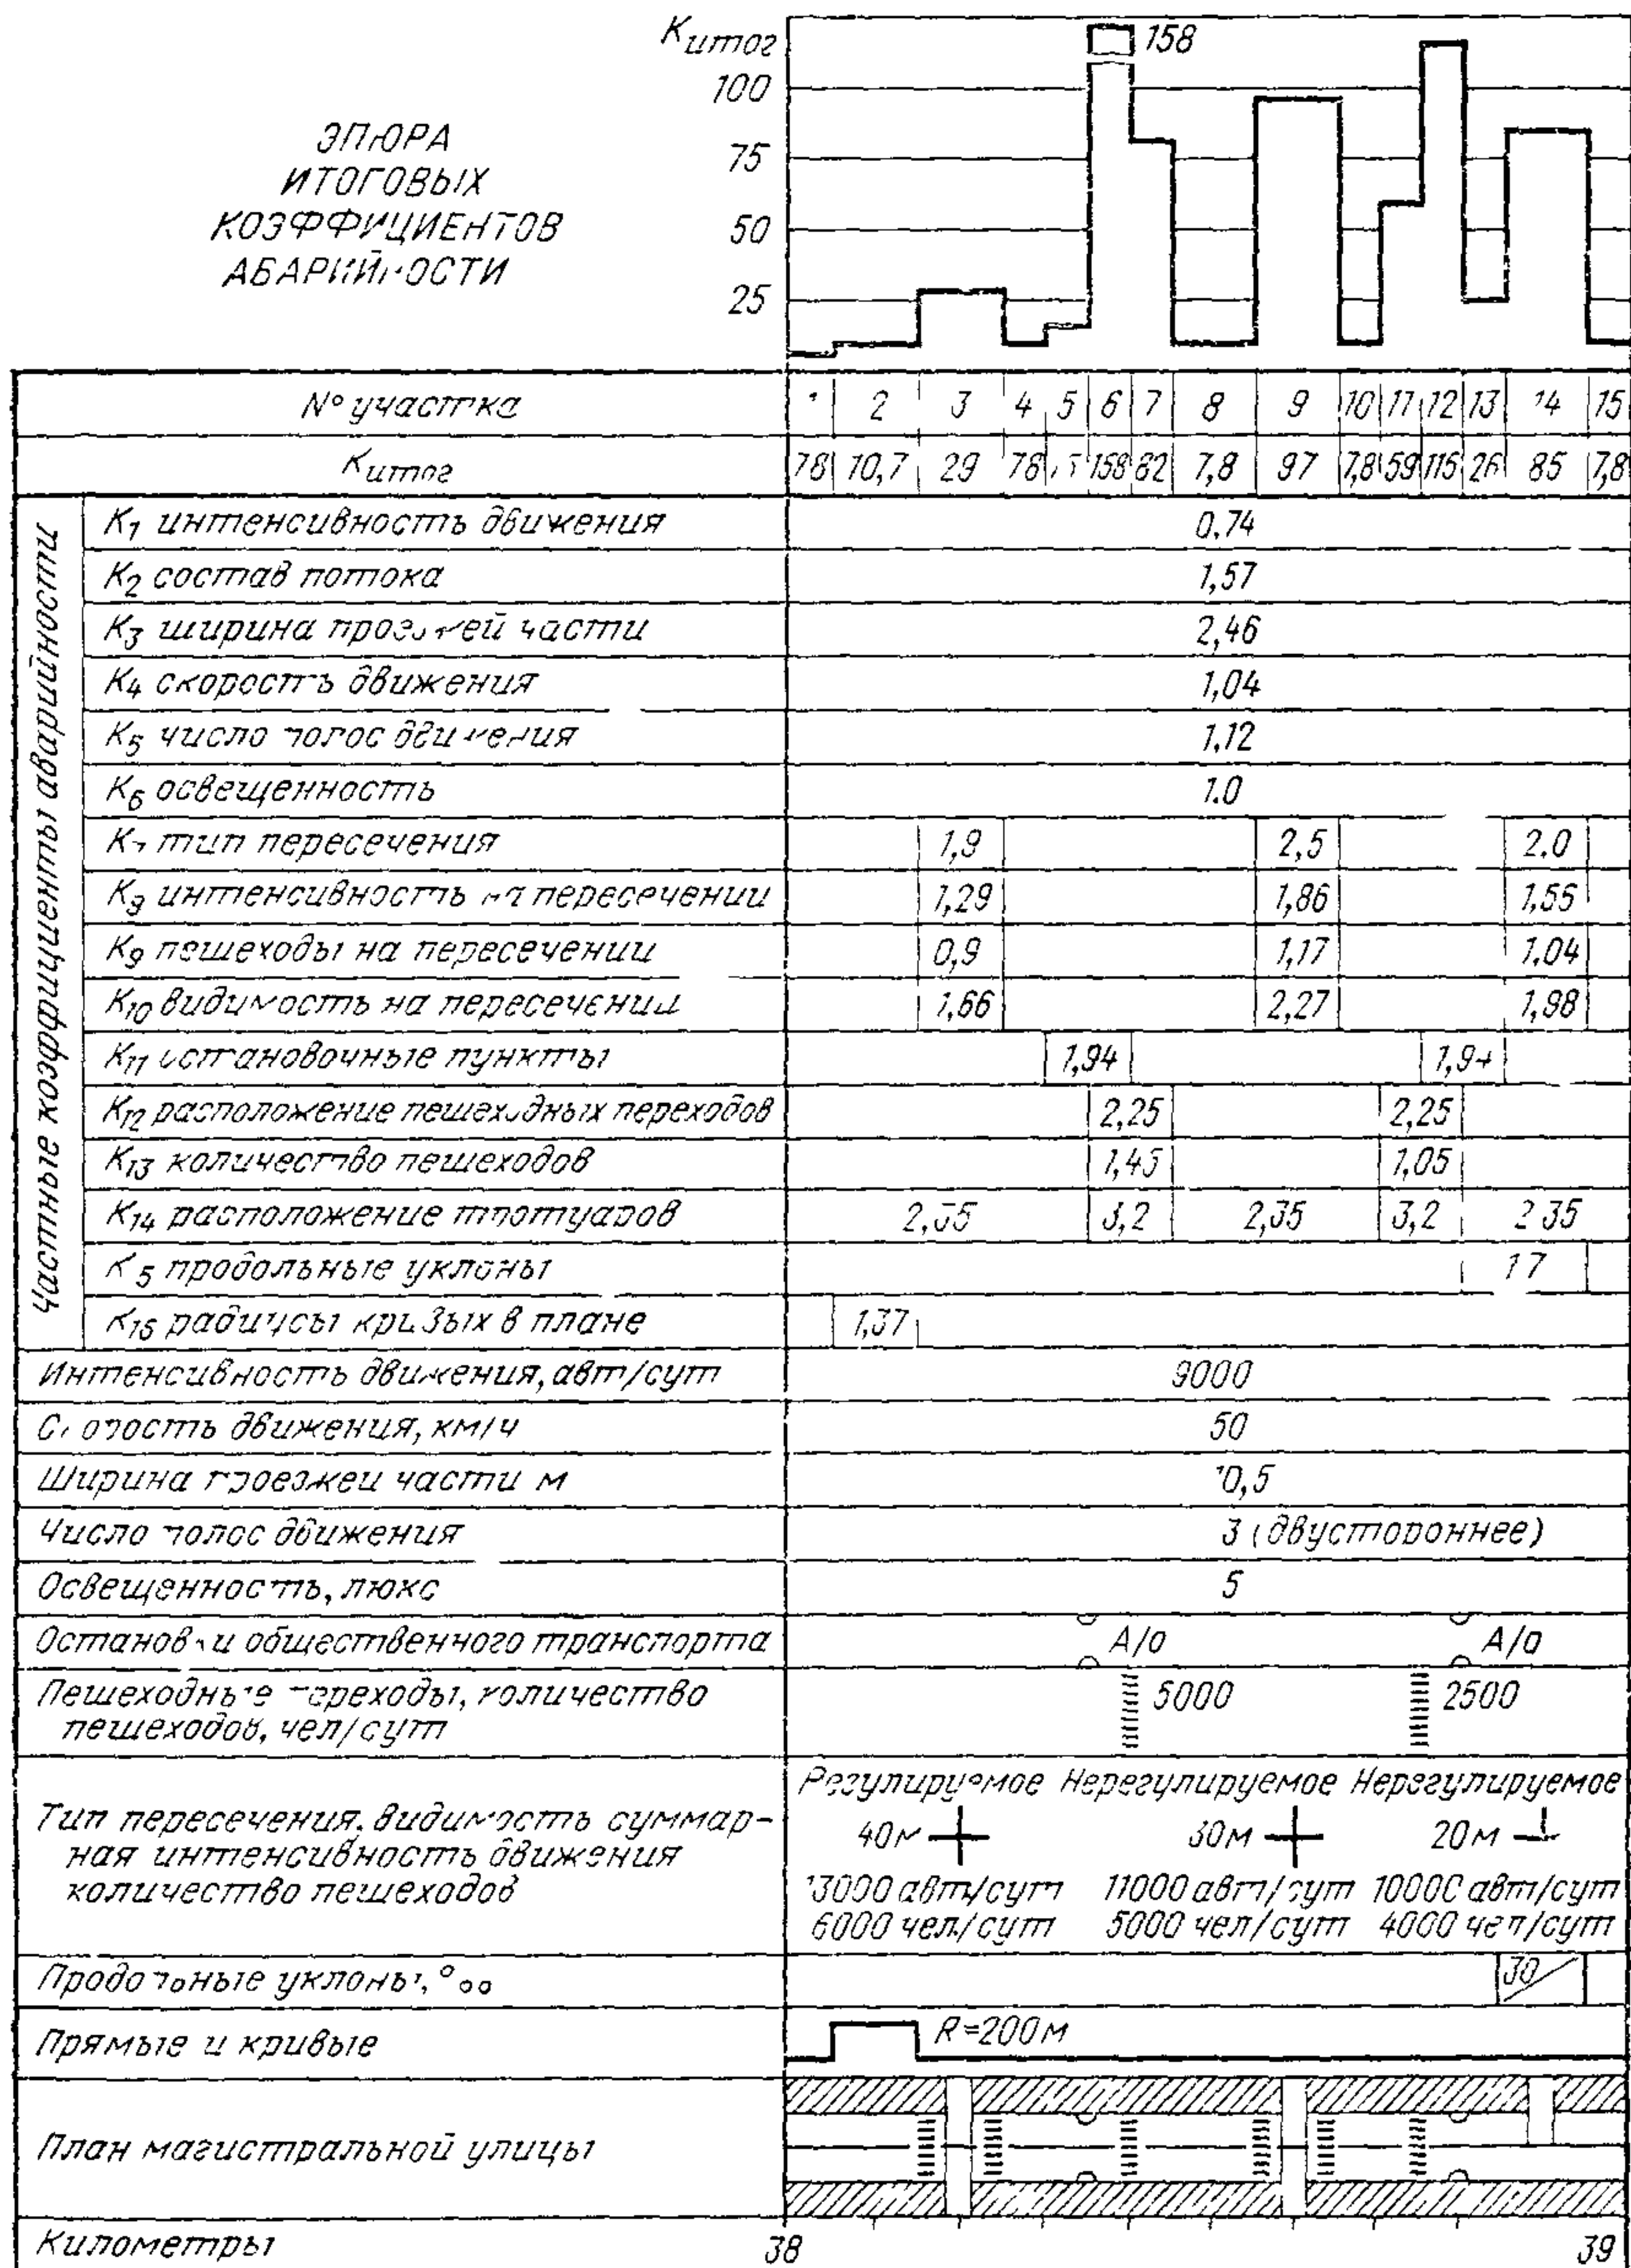 Kитог
158
100
75
50
25
ЭПЮРА
ИТОГОВЫХ
КОЭФФИЦИЕНТОВ
АВАРИЙНОСТИ
N° участка 1 2 3 4 5 6 7 8 9 10 11 12 13 14 15
Kитог 78 10,7 29 78 158 82 7,8 97 7,8 59 115 26 85 7,8
Частные коэффициенты аварийности
K1 интенсивность движения 0,74
K2 состав потока 1,57
K3 ширина проезжей части 2,46
K4 скорость движения 1,04
K5 число полос движения 1,12
K6 освещенность 1.0
K7 тип пересечения 1,9 2,5 2.0
K8 интенсивность на пересечении 1,29 1,86 1,55
K9 пешеходы на пересечении 0,9 1,17 1.04
K10 видимость на пересечении 1,66 2,27 1,98
K11 остановочные пункты 1,94 1,94
K12 расположение пешеходных переходов 2,25 2,25
K13 количество пешеходов 1,45 1,05
K14 расположение тротуаров 2,35 3,2 2,35 3,2 2 35
K15 продольные уклоны 1 7
K16 радиусы кривых в плане 1,37
Интенсивность движения, авт/сут 9000
Скорость движения, км/ч 50
Ширина проезжей части м 10,5
Число полос движения 3 (двустороннее)
Освещенность, люкс 5
Остановки общественного транспорта А/О А/О
Пешеходные переходы, количество
пешеходов, чел/сут 5000 2500
Регулируемое Нерегулируемое Нерегулируемое
Тип пересечения, видимость суммар-
ная интенсивность движения
количество пешеходов
40м 30м 20м
13000 авт/сут 11000 авт/сут 10000 авт/сут
6000 чел/сут 5000 чел/сут 4000 чел/сут
Продольные уклоны, °оо 30
Прямые и кривые R=200м
План магистральной улицы
Километры 38 39